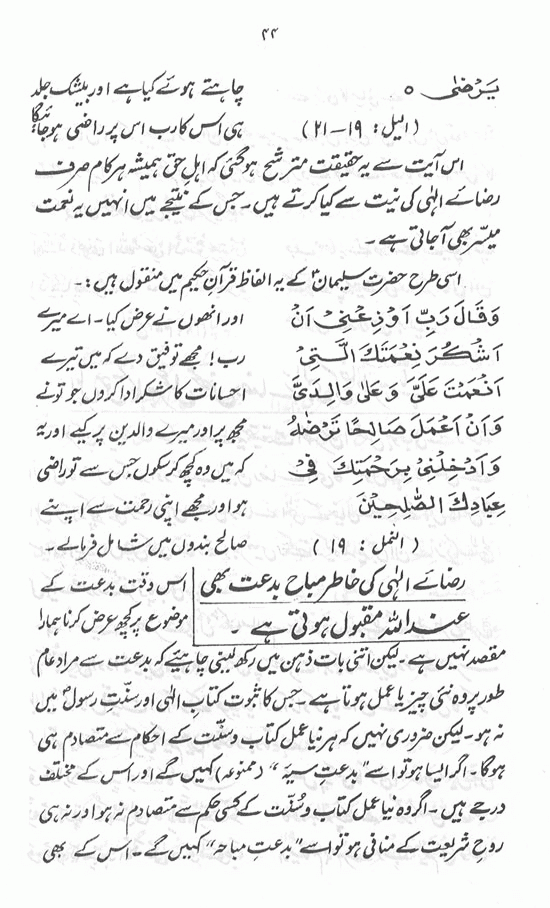 ۴۴
یَرْضٰی ○ چاہتے ہوئے کیا ہے اور بیشک جلد
(الیل: ۱۹-۲۱) ہی اس کا رب اس پر راضی ہو جائیگا
اس آیت سے یہ حقیقت مترشح ہو گئی کہ اہلِ حق ہمیشہ ہر کام صرف
رضائے الٰہی کی نیت سے کیا کرتے ہیں۔ جس کے نتیجے میں انہیں یہ نعمت
میسّر بھی آجاتی ہے۔
اسی طرح حضرت سلیمانؑ کے یہ الفاظ قرآنِ حکیم میں منقول ہیں:۔
وَقَالَ رَبِّ اَوْزِعْنِیْ اَنْ اور انھوں نے عرض کیا۔ اے میرے
اَشْکُرَ نِعْمَتَكَ الَّتِیْ رب! مجھے توفیق دے کہ میں تیرے
اَنْعَمْتَ عَلَیَّ وَعَلٰی وَالِدَیَّ احسانات کا شکر ادا کروں جو تونے
وَاَنْ اَعْمَلَ صَالِحًا تَرْضٰہُ مجھ پر اور میرے والدین پر کیے اور یہ
وَاَدْخِلْنِیْ بِرَحْمَتِكَ فِیْ کہ میں وہ کچھ کر سکوں جس سے تو راضی
عِبَادِكَ الصّٰلِحِیْنَ ہو اور مجھے اپنی رحمت سے اپنے
(النمل: ۱۹) صالح بندوں میں شامل فرمالے۔
رضائے الٰہی کی خاطر مباح بدعت بھی اس وقت بدعت کے
عنداللہ مقبول ہوتی ہے۔ موضوع پر کچھ عرض کرنا ہمارا
مقصد نہیں ہے۔ لیکن اتنی بات ذہن میں رکھ لینی چاہیئے کہ بدعت سے مراد عام
طور پر وہ نئی چیز یا عمل ہوتا ہے۔ جس کا ثبوت کتابِ الٰہی اور سنّتِ رسولؐ میں
نہ ہو۔ لیکن ضروری نہیں کہ ہر نیا عمل کتاب و سنّت کے احکام سے متصادم ہی
ہوگا۔ اگر ایسا ہو تو اسے "بدعتِ سیۂ" (ممنوعہ) کہیں گے اور اس کے مختلف
درجے ہیں۔ اگر وہ نیا عمل کتاب و سُنّت کے کسی حکم سے متصادم نہ ہو اور نہ ہی
روحِ شریعت کے منافی ہو تو اسے "بدعتِ مباحہ" کہیں گے۔ اس کے بھی